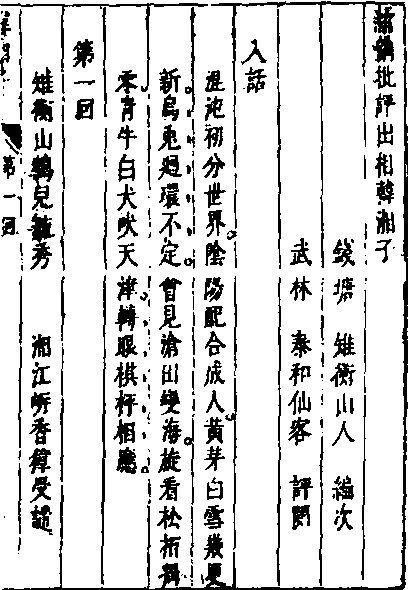 新鐫批評出相韓湘子
錢塘 雉衡山人 編次
武林 泰和仙客 評閱
入話
混沌初分世界。陰陽配合成人。黃芽白雪幾更
新。烏兔迴環不定。曾見滄田變海。旋看松柏
零。青牛白犬吠天津。轉眼棋枰相應。
第一回
雉衡山鶴兒毓秀 湘江岸香獐受譴
第一回